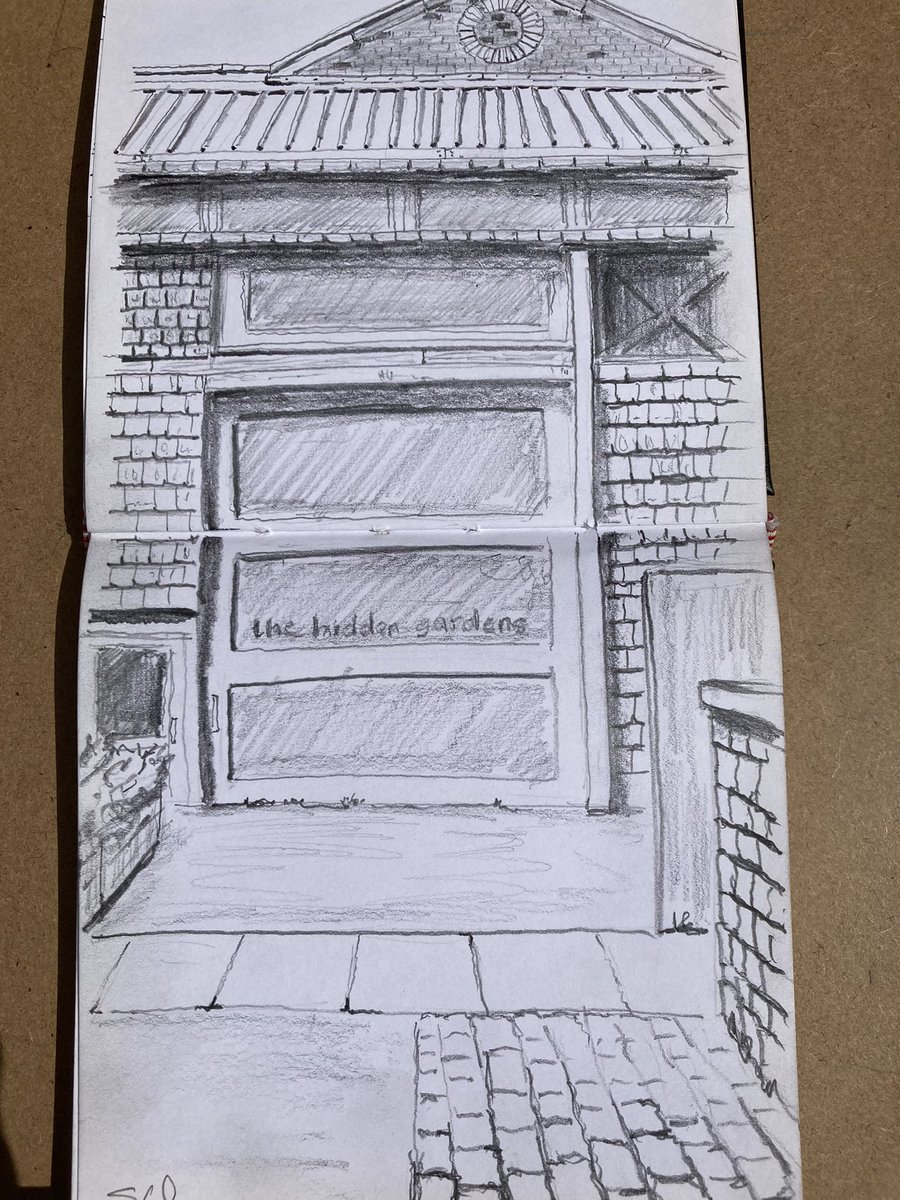 the hidden gardens